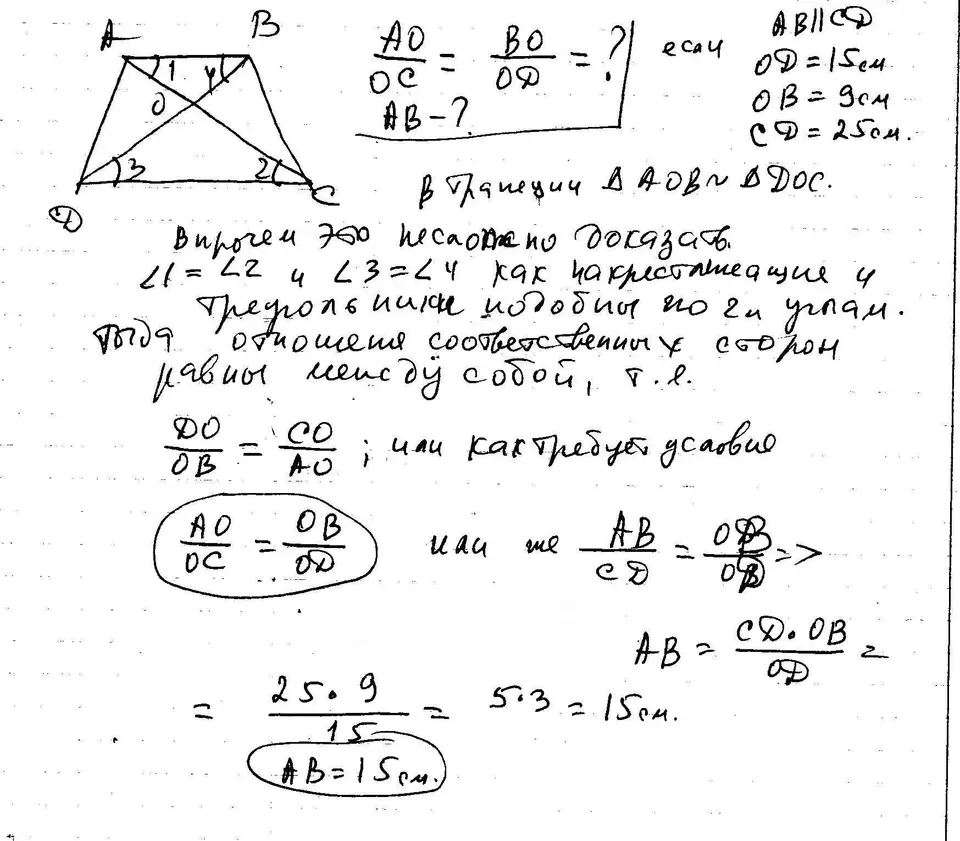 A B
1 4
O
3 2
D C
AO/OC = BO/OD = ? если
AB - ?
AB || CD
OD = 15 см
OB = 9 см
CD = 25 см.
В трапеции Δ AOB ~ Δ DOC.
Впрочем это несложно доказать.
∠1 = ∠2 и ∠3 = ∠4 как накрестлежащие и
треугольники подобны по 2м углам.
Тогда отношения соответственных сторон
равны между собой, т.е.
DO/OB = CO/AO ; или как требует условие
AO/OC = OB/OD или же AB/CD = OB/OD =>
AB = CD · OB/OD =
= 25 · 9/15 = 5 · 3 = 15 см.
AB = 15 см.